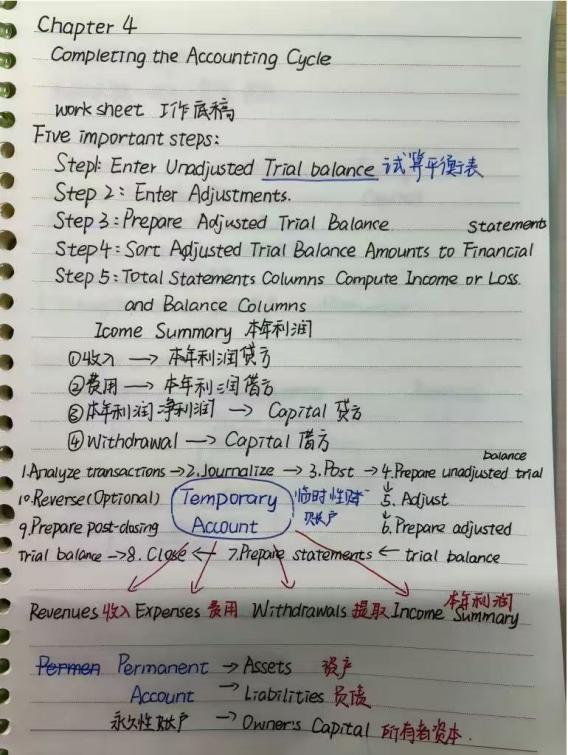 Chapter 4
Completing the Accounting Cycle
work sheet 工作底稿
Five important steps:
Step1: Enter Unadjusted Trial balance 试算平衡表
Step 2: Enter Adjustments.
Step 3: Prepare Adjusted Trial Balance
Statements
Step4: Sort Adjusted Trial Balance Amounts to Financial
Step 5: Total Statements Columns Compute Income or Loss.
and Balance Columns
Icome Summary 本年利润
①收入 → 本年利润贷方
②费用 → 本年利润借方
③本年利润净利润 → Capital 贷方
④Withdrawal → Capital 借方
balance
1.Analyze transactions → 2.Journalize → 3.Post → 4.Prepare unadjusted trial
10.Reverse(Optional) Temporary 临时性账 ↓ 5. Adjust
9.Prepare post-closing Account 户 ↓ 6.Prepare adjusted
Trial balance → 8. Close ← 7.Prepare statements ← trial balance
本年利润
Revenues 收入 Expenses 费用 Withdrawals 提取 Income Summary
Permen Permanent → Assets 资产
Account → Liabilities 负债
永久性账户 → Owner's Capital 所有者资本.